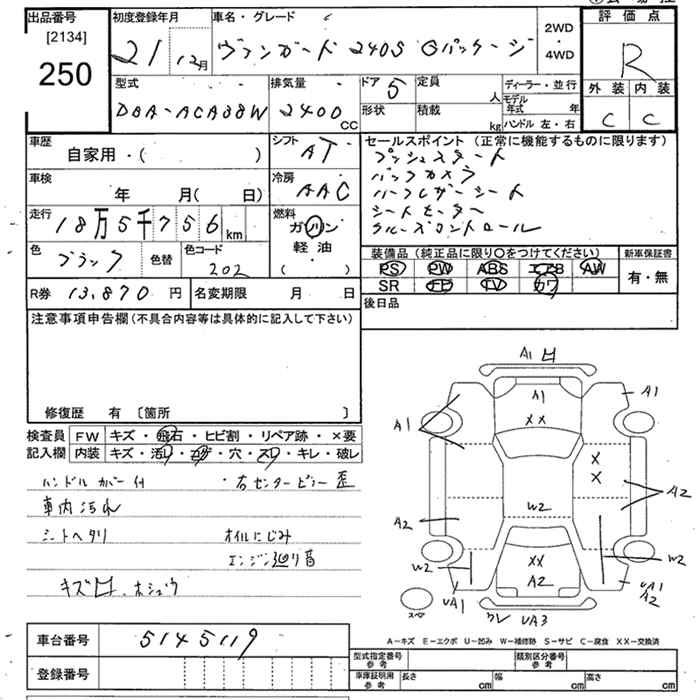 出品番号
[2134]
250
初度登録年月
21 12月
車名・グレード
ヴァンガード 240S Gパッケージ
2WD
・
4WD
評価点
R
外装 内装
C C
型式
DBA-ACA38W
排気量
2400 CC
ドア 5
形状
定員 人
積載 kg
ディーラー・並行
モデル年式 年
ハンドル 左・右
車歴
自家用・( )
シフト
AT
車検
年 月( 日)
冷房
AAC
走行
18万5千756 km
燃料
ガソリン
軽油
( )
色
ブラック
色替
色コード
202
R券 13,870 円
名変期限 月 日
セールスポイント (正常に機能するものに限ります)
プッシュスタート
バックカメラ
ハーフレザーシート
シートヒーター
クルーズコントロール
装備品 (純正品に限り○をつけてください)
新車保証書
PS PW ABS エアB AW
有・無
SR TV カワ
後日品
注意事項申告欄 (不具合内容等は具体的に記入して下さい)
修復歴 有 〔箇所 〕
検査員
記入欄
FW キズ・飛石・ヒビ割・リペア跡・×要
内装 キズ・汚レ・コゲ・穴・スレ・キレ・破レ
ハンドルカバー付 ・右センターピラー歪
車内汚れ
シートヘタリ オイルにじみ
エンジン廻り音
キズ凹、ホシュウ
A1 凹
A1
A1
XX
A1
X
X
A2
W2
A2
W2
W2
XX
A2
UA1
UA1
A2
スペア
クレ UA3
A-キズ E-エクボ U-凹み W-補修跡 S-サビ C-腐食 XX-交換済
車台番号
5145119
登録番号
型式指定番号
参考
類別区分番号
参考
車庫証明用
参考
長さ cm
幅 cm
高さ cm